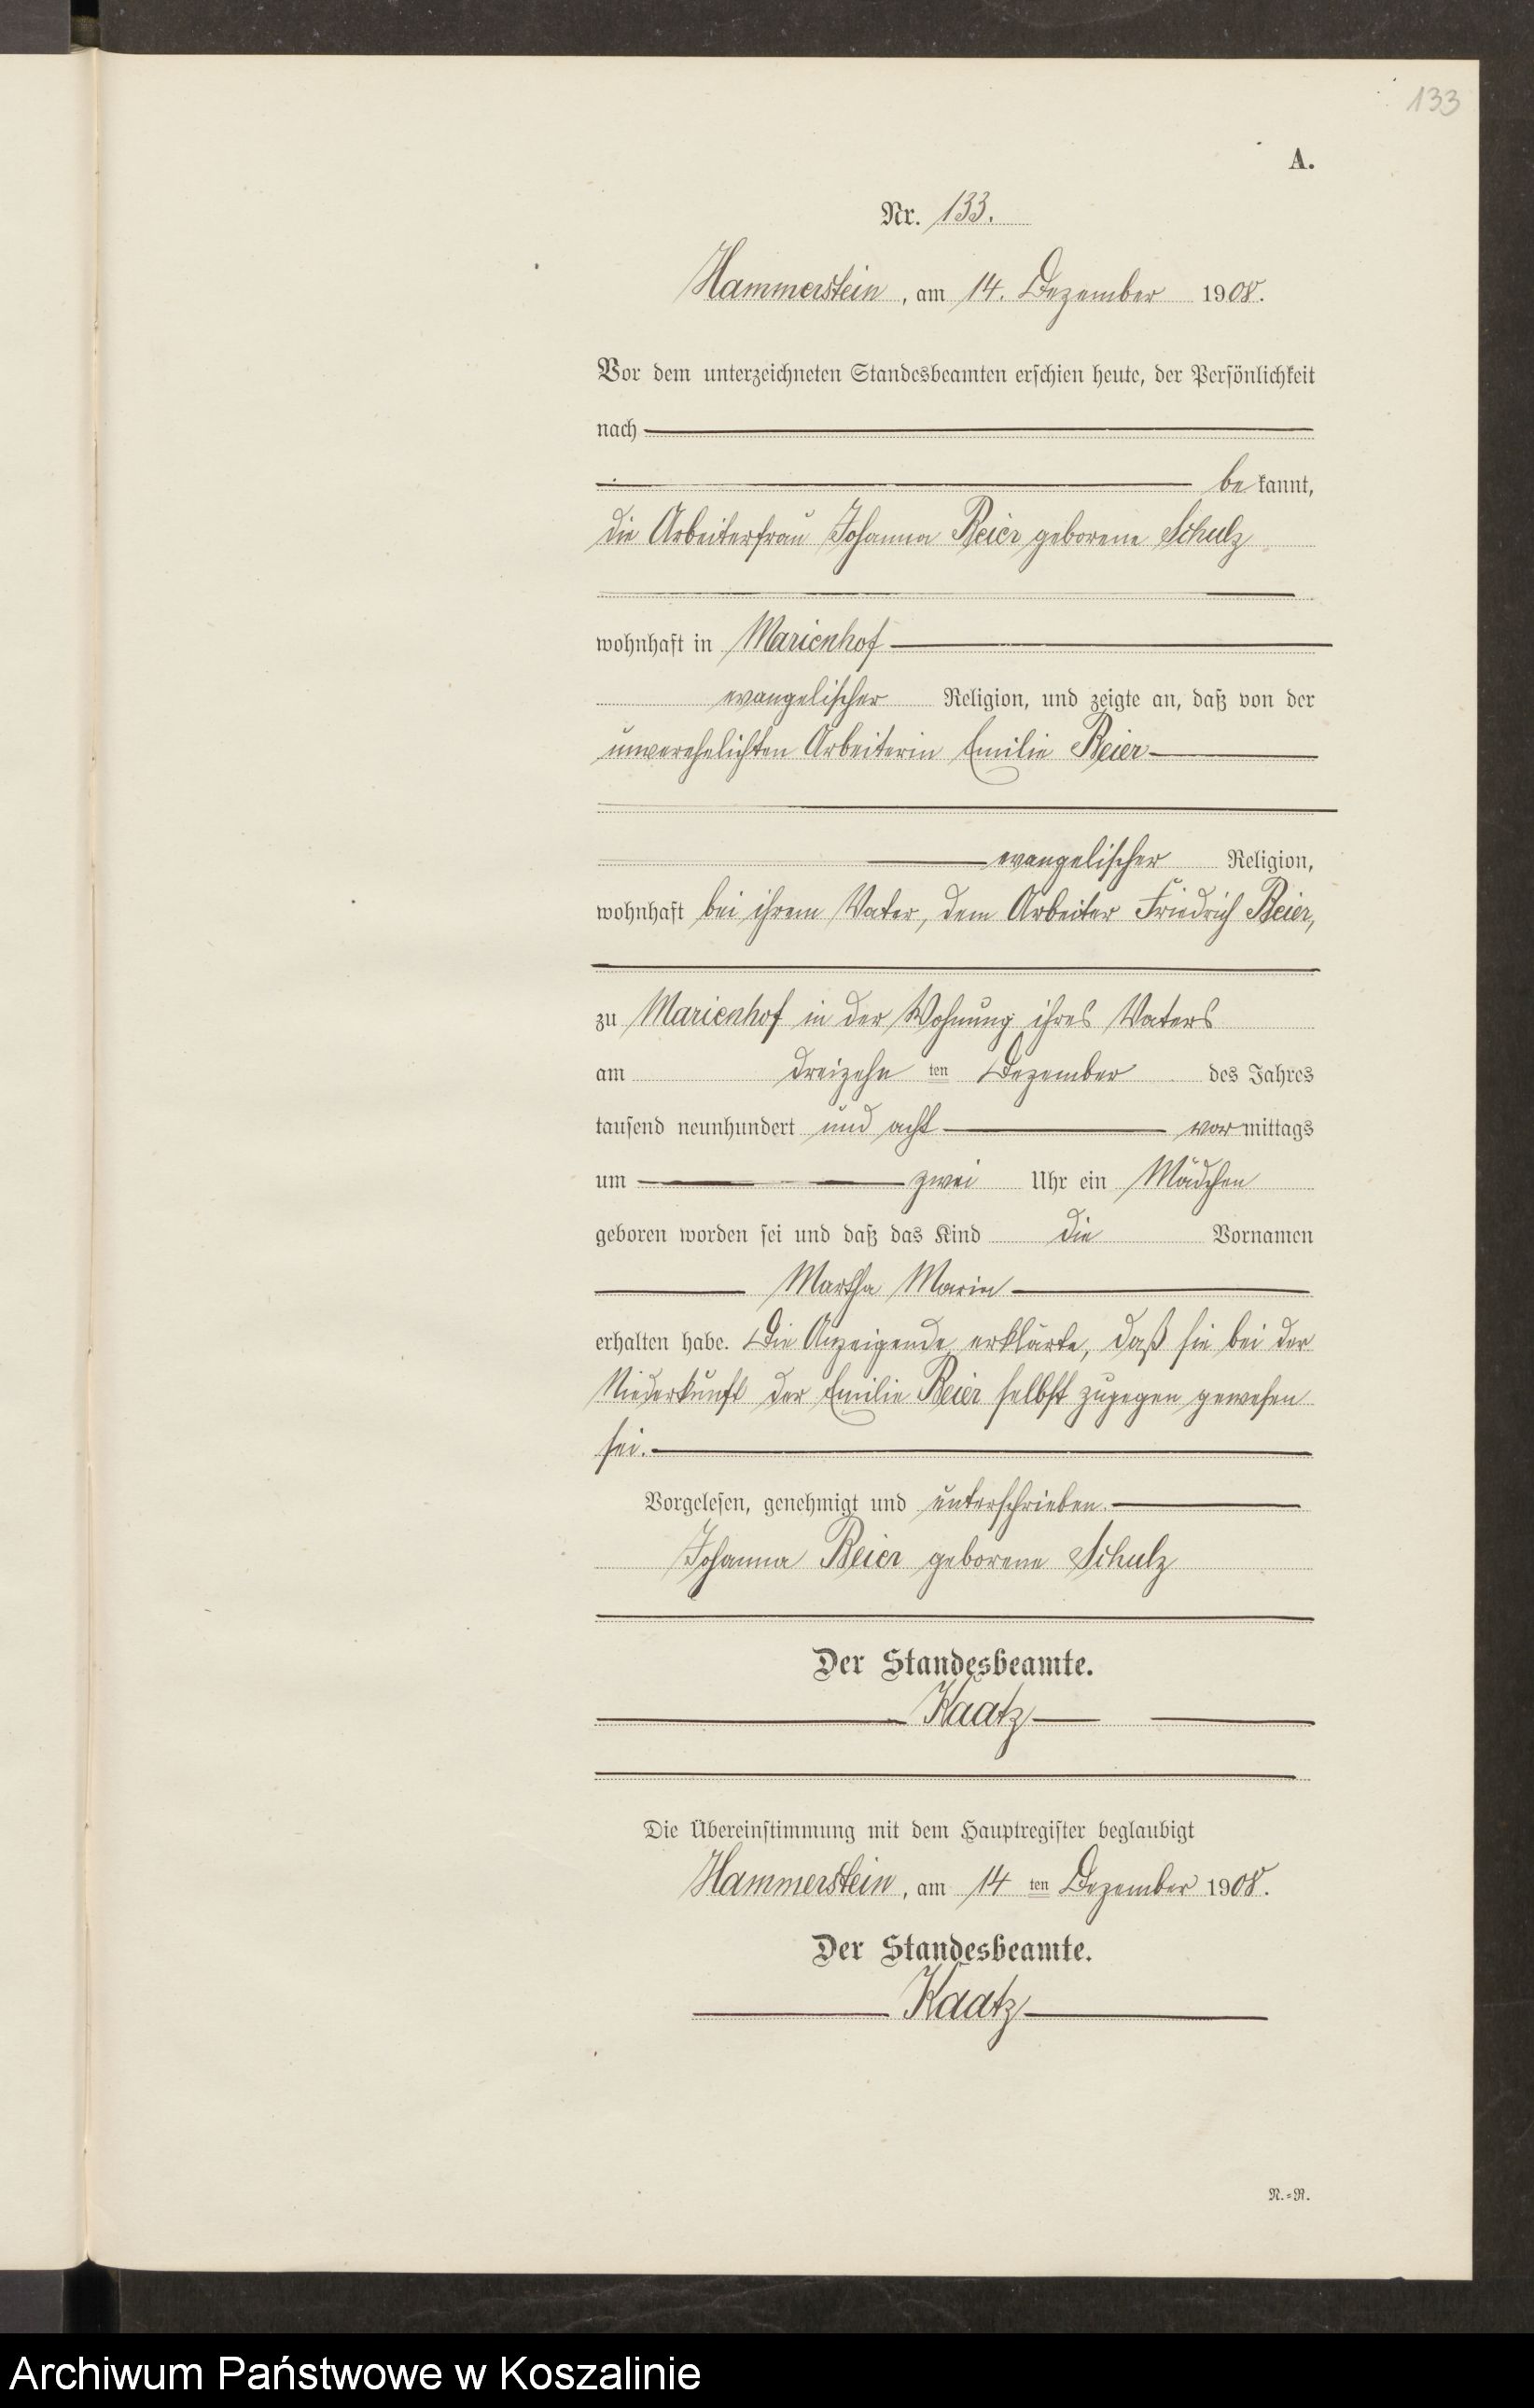 133
A.
Nr. 133.
Hammerstein, am 14. Dezember 1908.
Vor dem unterzeichneten Standesbeamten erschien heute, der Persönlichkeit
nach
be kannt,
die Arbeiterfrau Johanna Beier geborene Schulz
wohnhaft in Marienhof
evangelischer Religion, und zeigte an, daß von der
unverehelichten Arbeiterin Emilie Beier
evangelischer Religion,
wohnhaft bei ihrem Vater, dem Arbeiter Friedrich Beier,
zu Marienhof in der Wohnung ihres Vaters
am dreizehn ten Dezember des Jahres
tausend neunhundert und acht vor mittags
um zwei Uhr ein Mädchen
geboren worden sei und daß das Kind die Vornamen
Martha Marie
erhalten habe. Die Anzeigende erklärte, daß sie bei der
Niederkunft der Emilie Beier selbst zugegen gewesen
sei.
Vorgelesen, genehmigt und unterschrieben.
Johanna Beier geborene Schulz
Der Standesbeamte.
Kaatz
Die Übereinstimmung mit dem Hauptregister beglaubigt
Hammerstein, am 14 ten Dezember 1908.
Der Standesbeamte.
Kaatz
N.=R.
Archiwum Państwowe w Koszalinie